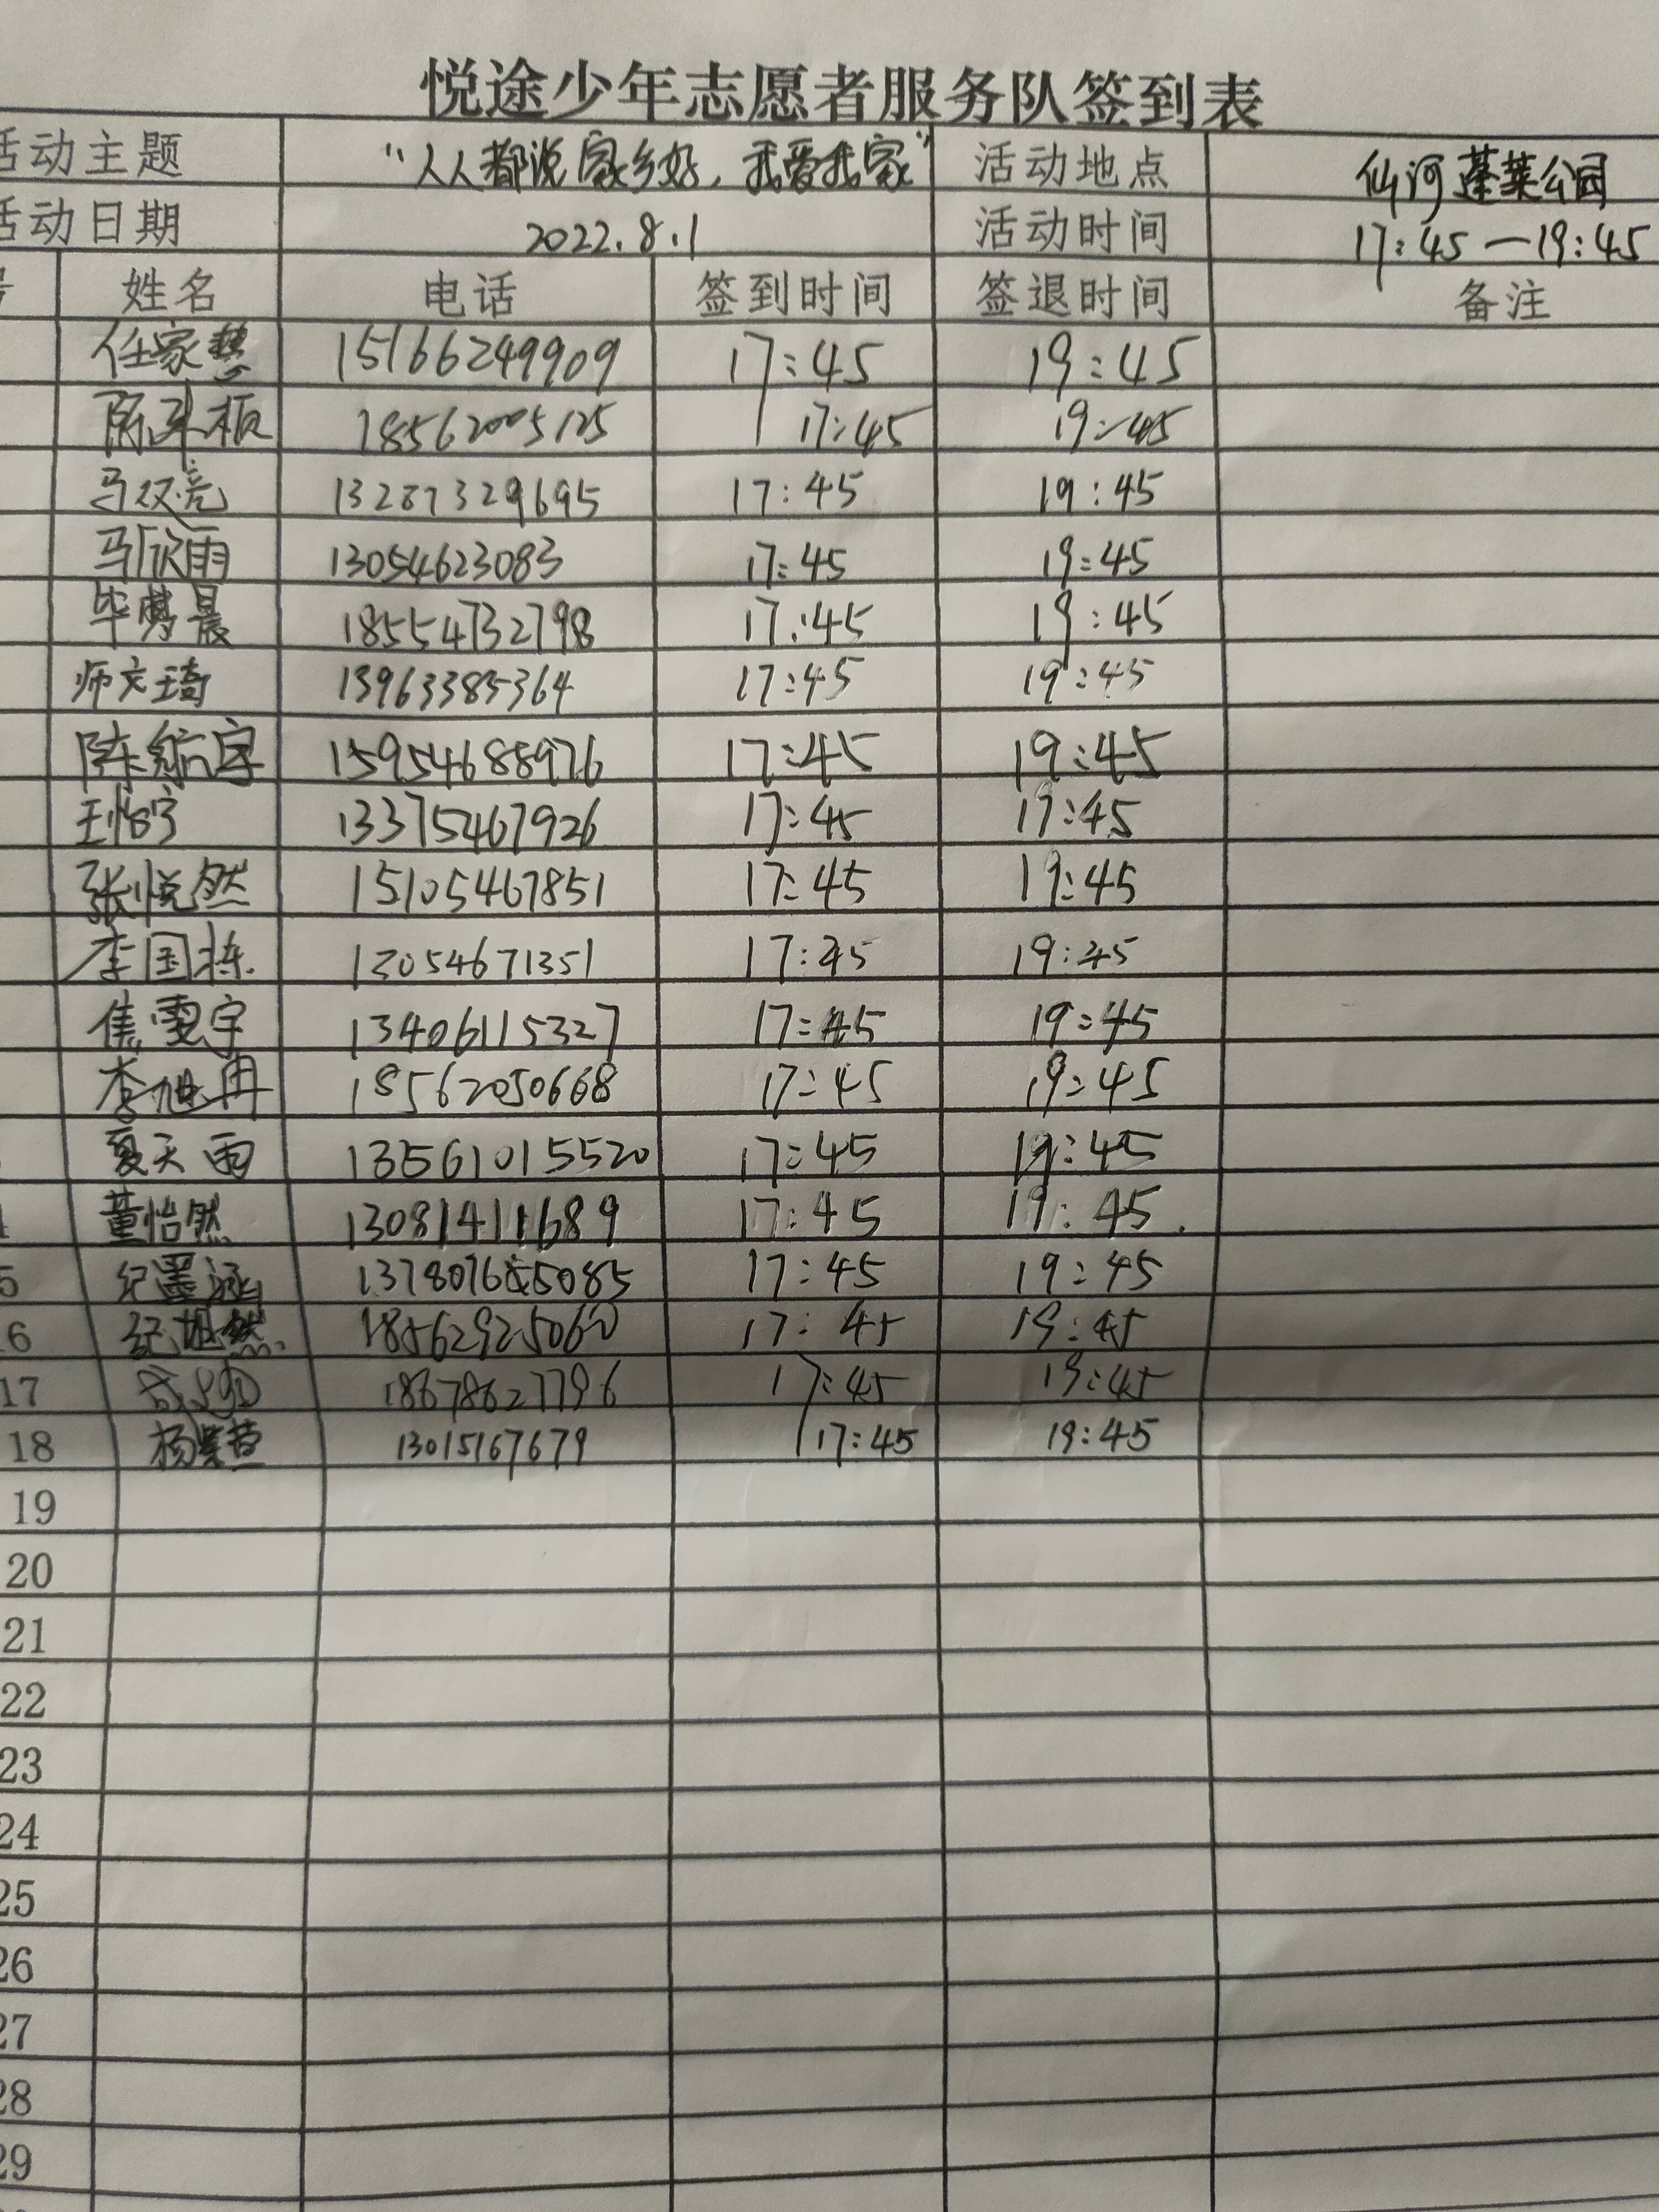 悦途少年志愿者服务队签到表
活动主题 “人人都说家乡好，我爱我家” 活动地点 仙河蓬莱公园
活动日期 2022.8.1 活动时间 17:45—19:45
号 姓名 电话 签到时间 签退时间 备注
任家慧 15166249909 17:45 19:45
18562005125 17:45 19:45
马双亮 13287329695 17:45 19:45
马欣雨 13054623083 17:45 19:45
毕梦晨 18554732798 17:45 19:45
师文琦 13963385364 17:45 19:45
陈航宇 15954688976 17:45 19:45
王怡宁 13375467926 17:45 19:45
张悦然 15105467851 17:45 19:45
李国栋 13054671351 17:45 19:45
焦雯宇 13406115327 17:45 19:45
李旭冉 18562050668 17:45 19:45
夏天雨 13561015520 17:45 19:45
董怡然 13081411689 17:45 19:45
5 纪墨涵 17:45 19:45
16 18562925060 17:45 19:45
17 18678627796 17:45 19:45
18 13015167679 17:45 19:45
19
20
21
22
23
24
25
26
27
28
29